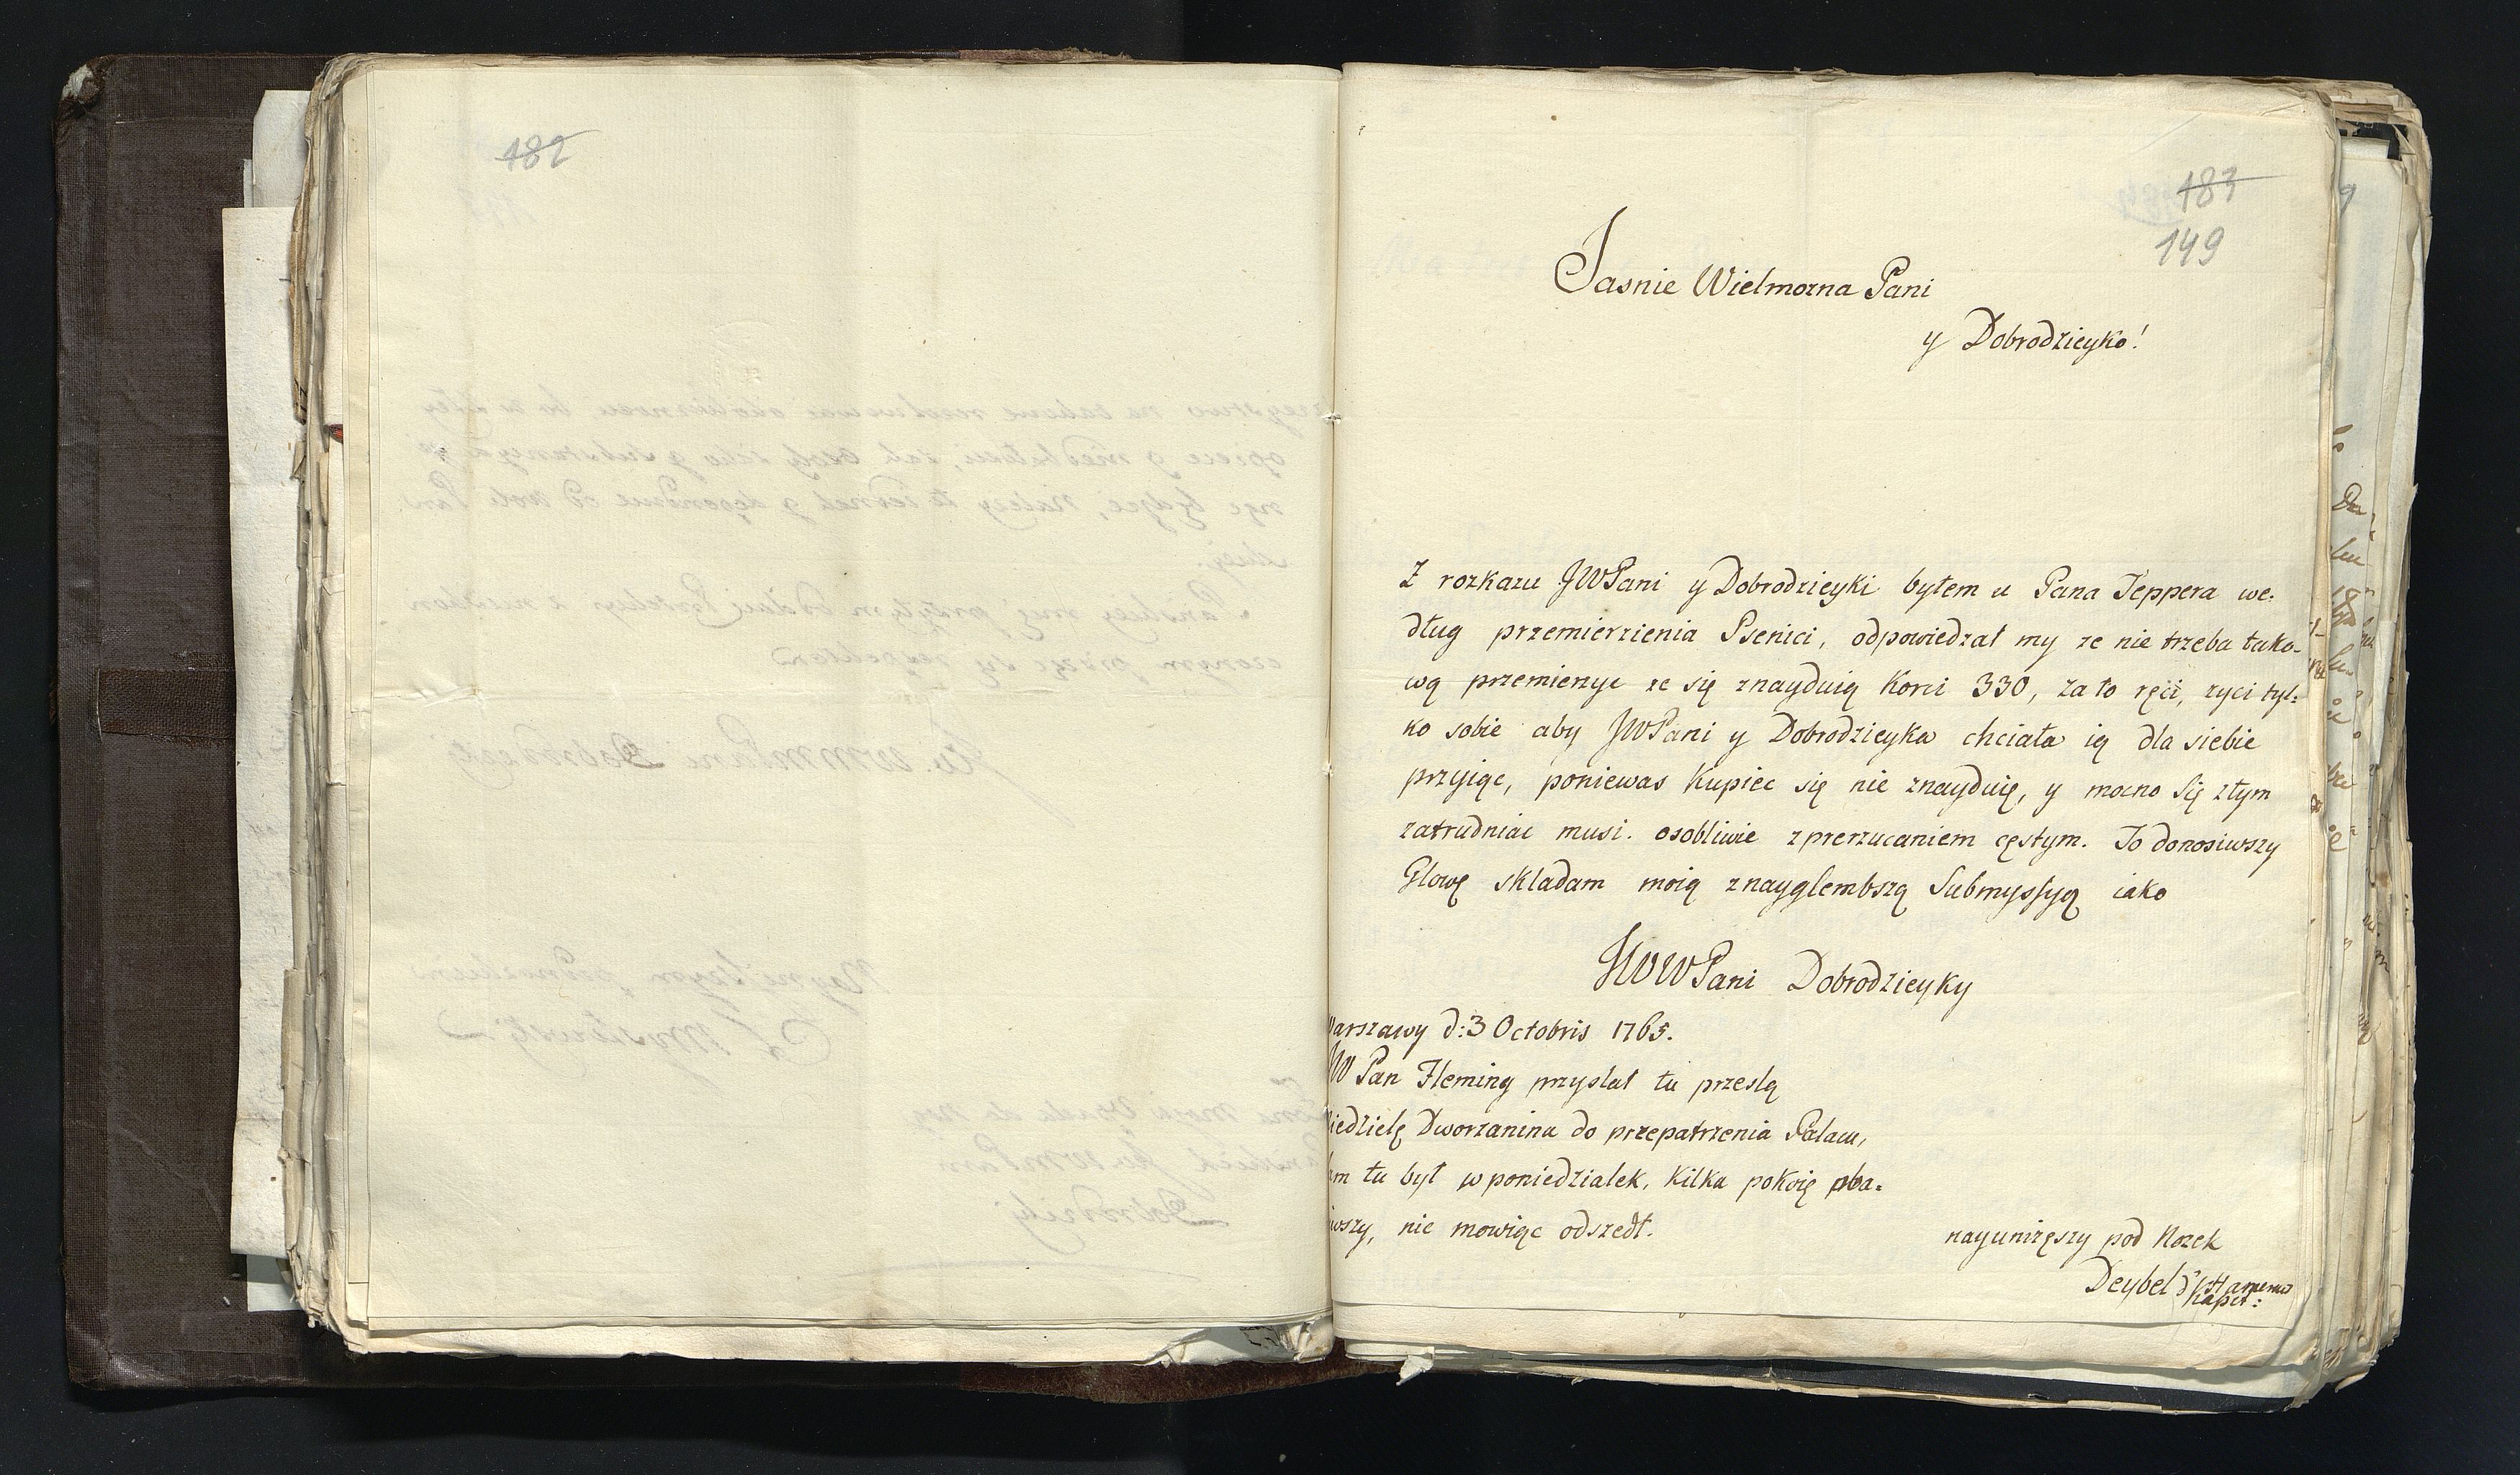 182
183
149
Jasnie Wielmozna Pani
y Dobrodzieyko!
Z rozkazu JWPani y Dobrodzieyki byłem u Pana Teppera we:
dług przemierzienia Psenici, odpowiedzał my ze nie trzeba tako:
wą przemierzyc ze się znayduią Korci 330, za to ręci, zyci tyl:
ko sobie aby JWPani y Dobrodzieyka chciała ią dla siebie
przyiąc, poniewas Kupiec się nie znayduię, y mocno się ztym
zatrudniac musi. osobliwie zprerzucaniem cęstym. To donosiwszy
Glowę skladam moią znayglembszą Submyssyą iako
JWWPani Dobrodzieyky
arszawy d: 3 Octobris 1765.
JW Pan Fleming przyslał tu przeslą
iedzielę Dworzanina do przepatrzenia Palacu,
m tu był w poniedzialek, Kilka pokoię oba:
wszy, nie mowiąc odszedł.
nayunizęszy pod Nozek
Deybel
Kapit: